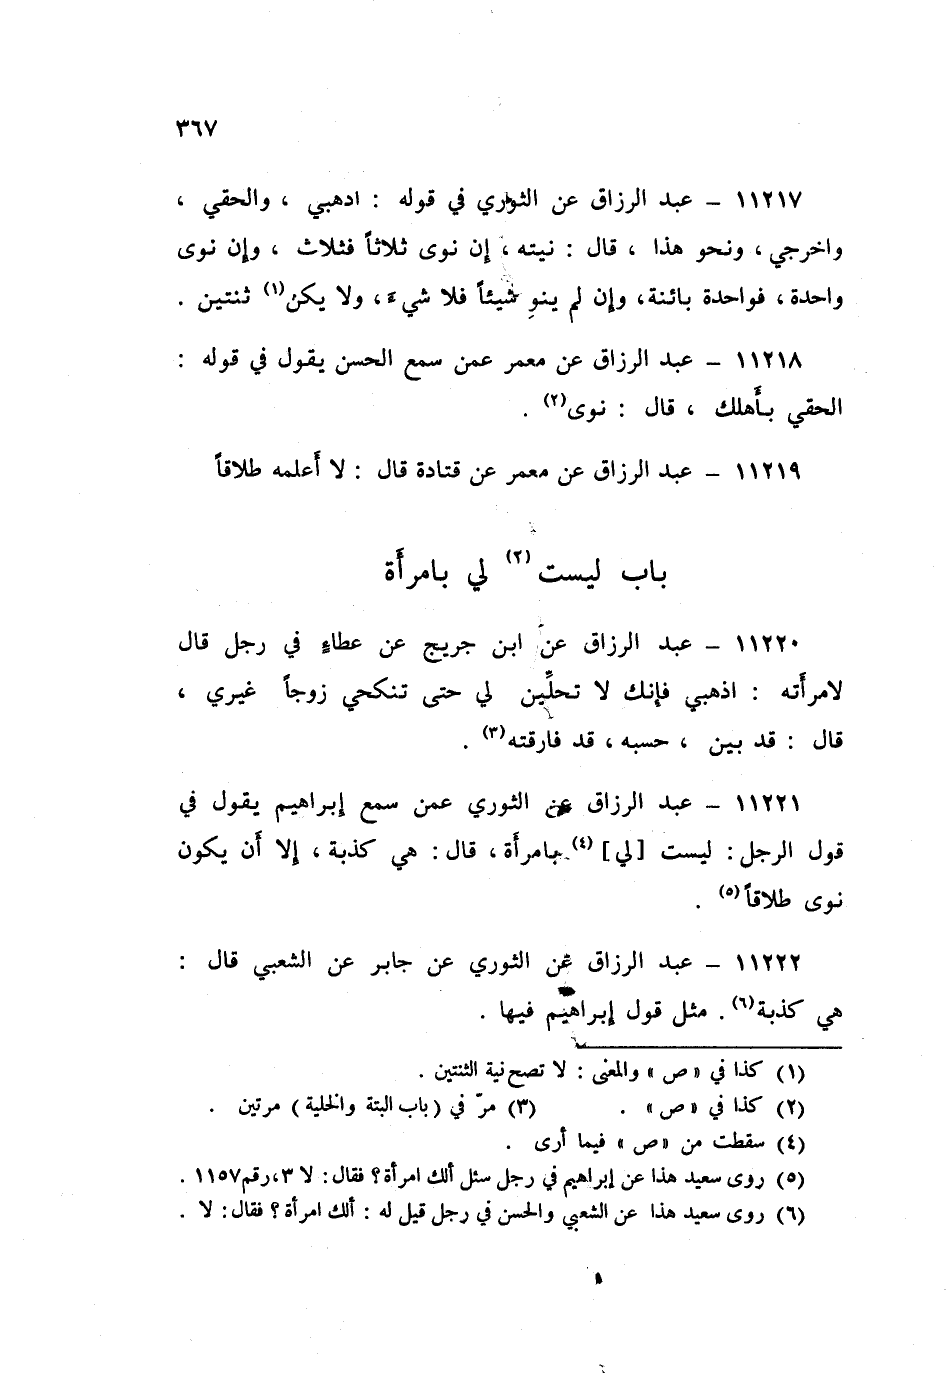 ٣٦٧
١١٢١٧ – عبد الرزاق عن الثوري في قوله : ادهبي ، والحقي ،
واخرجي ، ونحو هذا ، قال : نيته ، إن نوى ثلاثاً فثلاث ، وإن نوى
واحدة ، فواحدة بائنة، وإن لم ينوِ شيئاً فلا شيء ، ولا يكن(١) ثنتين .
١١٢١٨ – عبد الرزاق عن معمر عمن سمع الحسن يقول في قوله :
الحقي بأهلك ، قال : نوى(٢) .
١١٢١٩ – عبد الرزاق عن معمر عن قتادة قال : لا أعلمه طلاقاً
باب ليست(٢) لي بامرأة
١١٢٢٠ – عبد الرزاق عن ابن جريج عن عطاءٍ في رجل قال
لامرأته : اذهبي فإنك لا تحلِّين لي حتى تنكحي زوجاً غيري ،
قال : قد بين ، حسبه ، قد فارقته(٣) .
١١٢٢١ – عبد الرزاق عن الثوري عمن سمع إبراهيم يقول في
قول الرجل : ليست [لي](٤) بامرأة ، قال : هي كذبة ، إلا أن يكون
نوى طلاقاً(٥) .
١١٢٢٢ – عبد الرزاق عن الثوري عن جابر عن الشعبي قال :
هي كذبة(٦) . مثل قول إبراهيم فيها .
(١) كذا في «ص» والمعنى : لا تصح نية الثنتين .
(٢) كذا في «ص» . (٣) مرّ في (باب البتة والخلية) مرتين .
(٤) سقطت من «ص» فيما أرى .
(٥) روى سعيد هذا عن إبراهيم في رجل سئل ألك امرأة ؟ فقال : لا ٣، رقم ١١٥٧ .
(٦) روى سعيد هذا عن الشعبي والحسن في رجل قيل له : ألك امرأة ؟ فقال : لا .